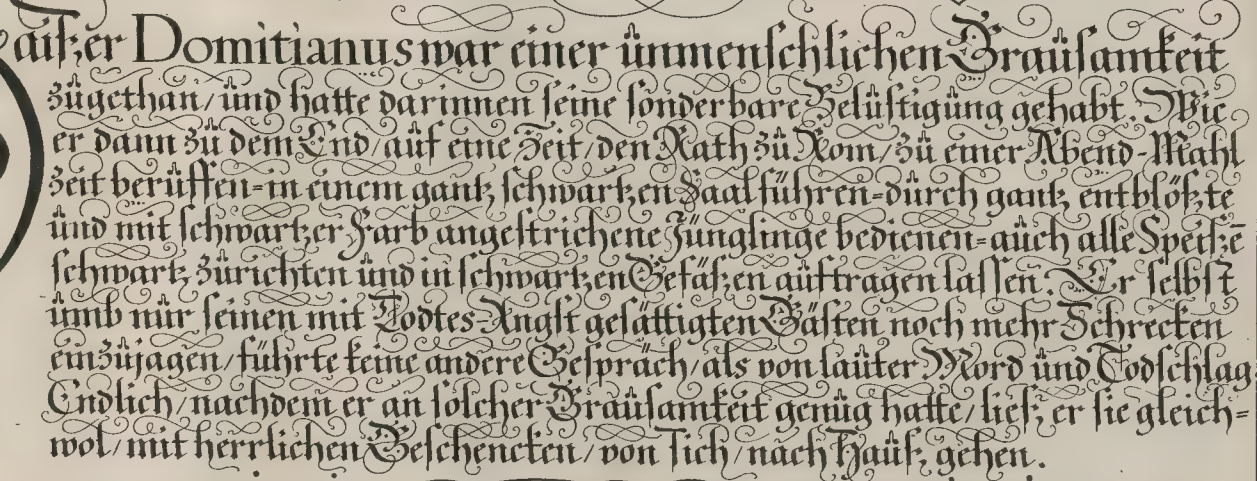 aiſzer Domitianus war einer unmenſchlichen Grauſamkeit
zugethan/und hatte darinnen ſeine ſonderbare Beluſtigung gehabt. Wie
er dann zu dem End/auf eine Zeit/den Rath zu Rom/zu einer Abend-Mahl
zeit beruffen-in einem gantz ſchwartzen Saal führen-durch gantz entblöſzte
und mit ſchwartzer Farb angeſtrichene Jünglinge bedienen-auch alle Speiſzē
ſchwartz zurichten und in ſchwartzen Gefäſzen auftragen laſſen. Er ſelbſt
umb nur ſeinen mit Todtes-Angſt geſättigten Gäſten noch mehr Schrecken
einzujagen/führte keine andere Geſpräch/als von lauter Mord und Todſchlag.
Endlich/nachdem er an ſolcher Grauſamkeit genug hatte/lieſz er ſie gleich-
wol/mit herrlichen Geſchencken/von ſich/nach Hauſz gehen.